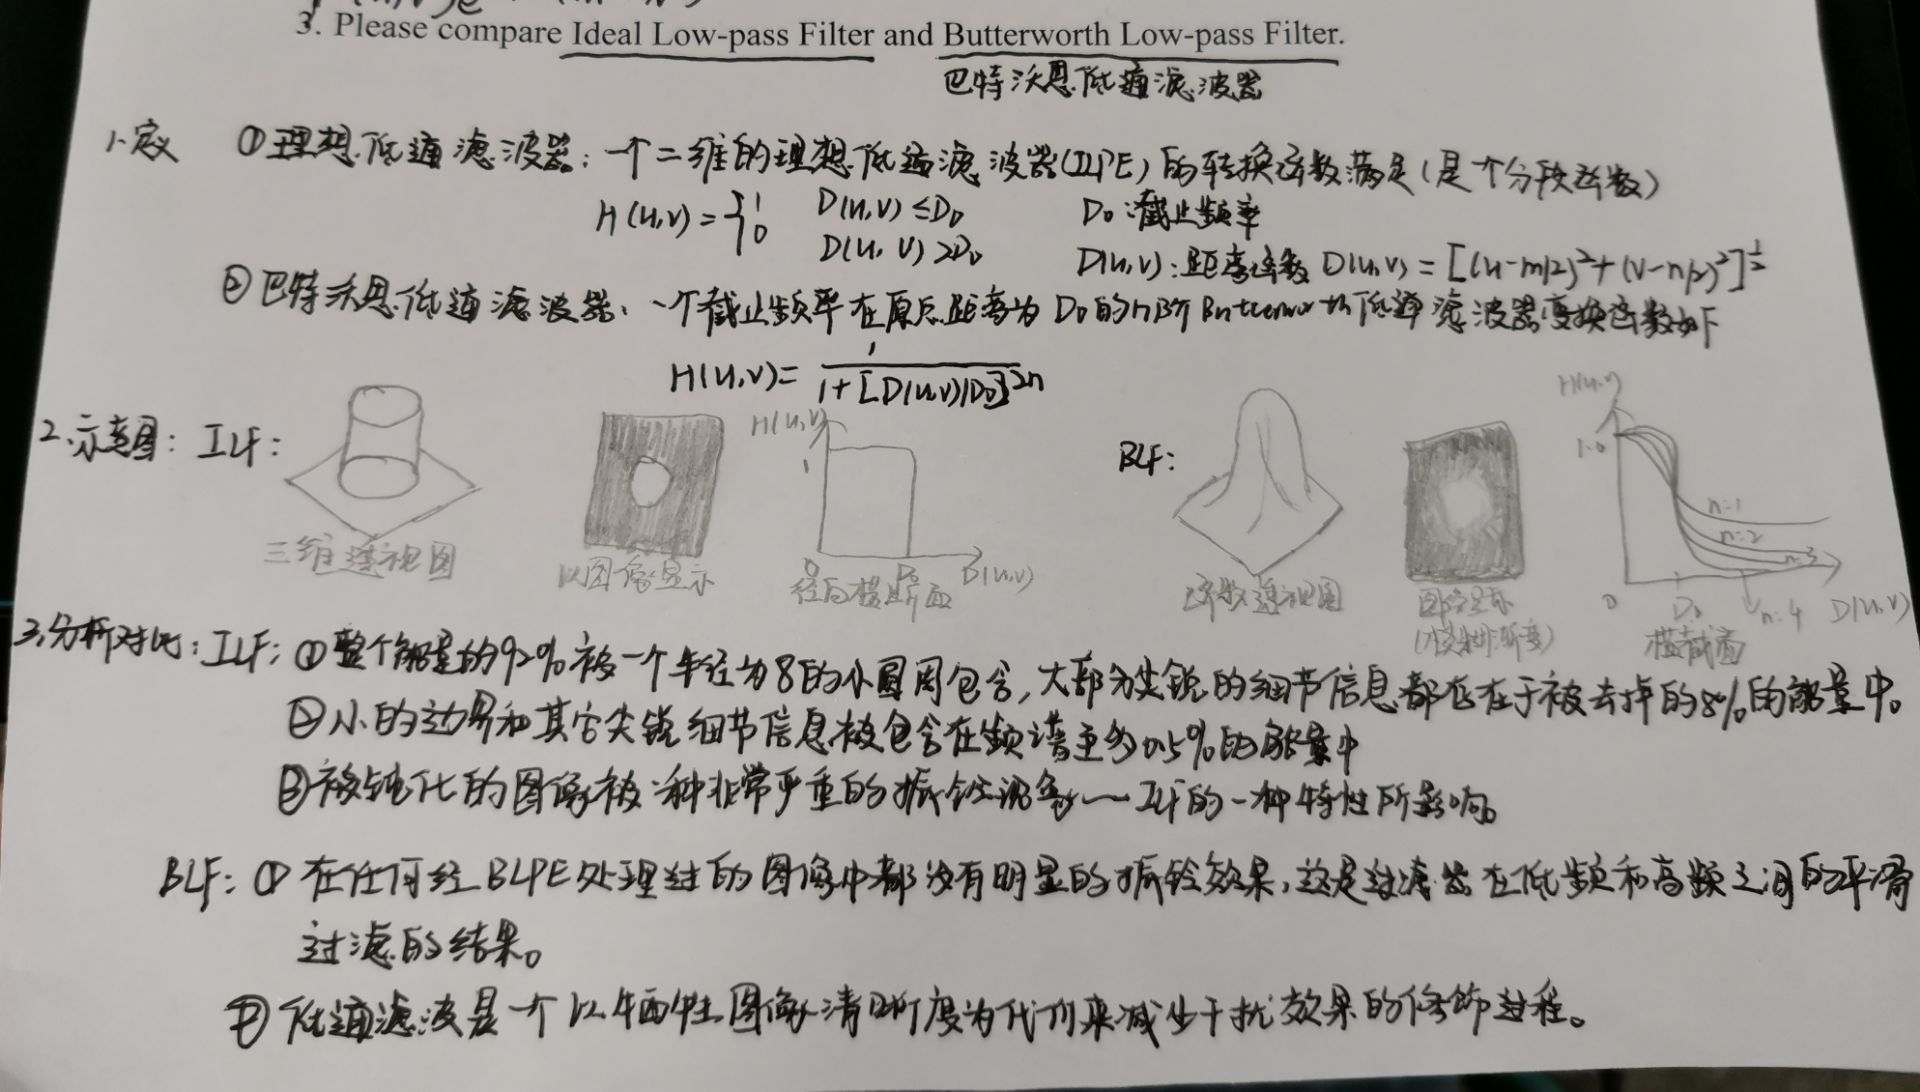 3. Please compare Ideal Low-pass Filter and Butterworth Low-pass Filter.
巴特沃思低通滤波器
1.定义 ①理想低通滤波器：一个二维的理想低通滤波器(ILPE)的转换函数满足(是个分段函数)
H(u,v)={1 D(u,v)≤D₀ D₀:截止频率
0 D(u,v)>D₀ D(u,v):距离函数 D(u,v)=[(u-m/2)²+(v-n/2)²]^½
②巴特沃思低通滤波器：一个截止频率在原点距离为D₀的n阶Butterworth低通滤波器变换函数如下
H(u,v)= 1/1+[D(u,v)/D₀]^2n
2.示意图：ILF:
H(u,v)
1
0 D₀ D(u,v)
三维透视图 以图像显示 径向横断面
BLF:
H(u,v)
1.0
n=1
n=2
n=3
n=4
0 D₀ D(u,v)
函数透视图 图像显示 横截面
(模糊渐变)
3.分析对比：ILF: ①整个能量的92%被一个半径为8的小圆周包含，大部分尖锐的细节信息都存在于被去掉的8%的能量中。
②小的边界和其它尖锐细节信息被包含在频谱至多0.5%的能量中
③被钝化的图像被一种非常严重的振铃现象——ILF的一种特性所影响。
BLF: ①在任何经BLPE处理过的图像中都没有明显的振铃效果，这是过滤器在低频和高频之间的平滑
过滤的结果。
②低通滤波是一个以牺牲图像清晰度为代价来减少干扰效果的修饰过程。